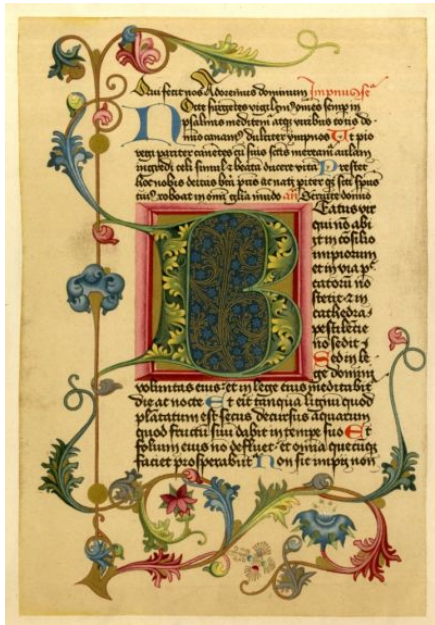 Qui fecit nos Adoremus dominum
Nocte surgētes vigilem⁹ om̄es semp in
psalmis meditem⁹ atqꝫ viribus totis do
mīo canam⁹ dulciter ympnos Ut pio
regi pariter canētes cū suis scīs meream⁹ aulam
ingredi celi simul & beatā ducere vitā Prestet
hoc nobis deitas btā prīs ac nati piter qꝫ scī spūs
cui⁹ reboat in om̄i glīa mūdo añ Seruite domīo
Beatus vir
qui nō abi
it in cōsilio
impiorum
et in via pc̄
catorū nō
stetit & in
cathedra
pestilētie
nō sedit
Sed in le
ge domini
voluntas eius et in lege eius meditabit̄
die ac nocte Et erit tānqua lignū quod
plātatum est secus decursus aquarum
quod fructū suū dabit in tempe suo Et
folium eius nō defluet et omīa quecūqꝫ
faciet prosperabūt̄ Non sic impij non